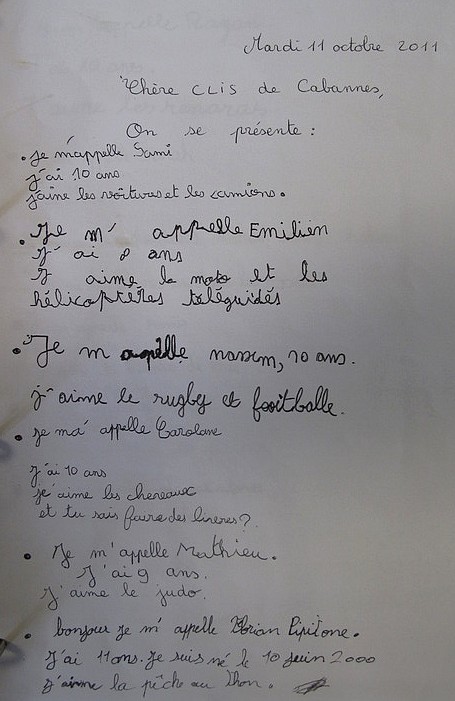 Mardi 11 octobre 2011
Chère CLIS de Cabannes,
On se présente :
• Je m'appelle Sami
j'ai 10 ans
j'aime les voitures et les camions.
• Je m' appelle Emilien
J' ai 8 ans
J aime la moto et les
hélicoptères téléguidés
• Je m appelle nassim, 10 ans.
j'aime le rugby et footballe.
• Je ma' appelle Carolane
J'ai 10 ans
je'aime les chevaux
et tu sais faire des
• Je m'appelle Mathieu.
J'ai 9 ans.
J'aime le judo.
• bonjour je m' appelle Florian Pipitone.
J'ai 11 ans. Je suis né le 10 juin 2000
j'aime la pêche au thon.